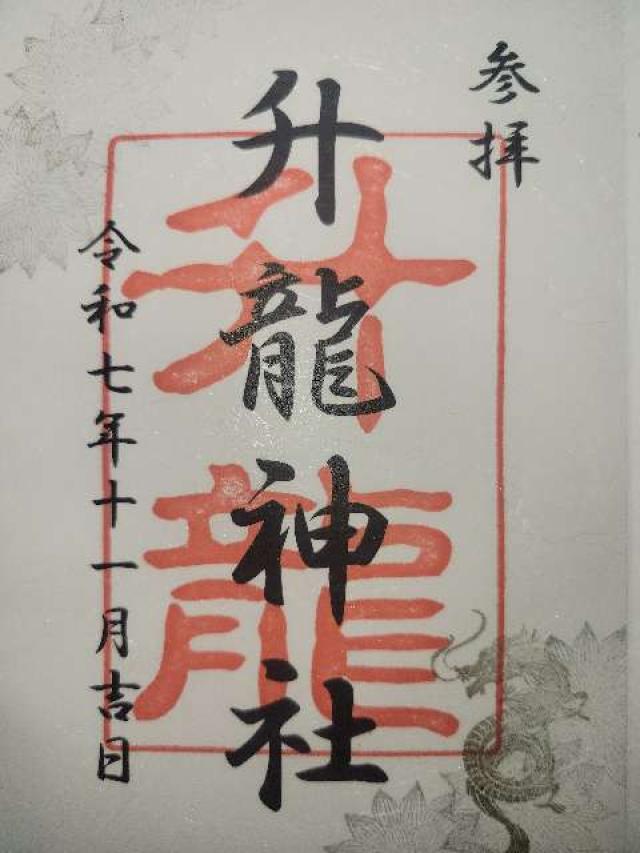 参拝
升龍神社
升龍
令和七年十一月吉日